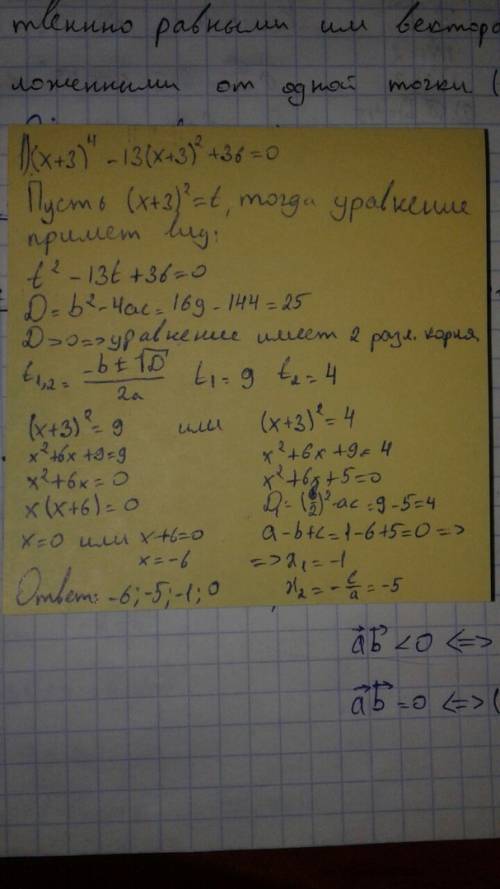 твенно равными им вектора
ложенными от одной точки (
1) (x+3)⁴ - 13(x+3)² + 36 = 0
Пусть (x+3)² = t, тогда уравнение
примет вид:
t² - 13t + 36 = 0
D = b² - 4ac = 169 - 144 = 25
D > 0 => уравнение имеет 2 разл. корня
t₁,₂ = (-b ± √D)/2a t₁ = 9 t₂ = 4
(x+3)² = 9 или (x+3)² = 4
x² + 6x + 9 = 9 x² + 6x + 9 = 4
x² + 6x = 0 x² + 6x + 5 = 0
x(x+6) = 0 D₁ = (6/2)² - ac = 9 - 5 = 4
x = 0 или x+6 = 0 a - b + c = 1 - 6 + 5 = 0 =>
x = -6 => x₁ = -1
Ответ: -6; -5; -1; 0 x₂ = -c/a = -5
a⃗b⃗ < 0 <=>
a⃗b⃗ = 0 <=> (